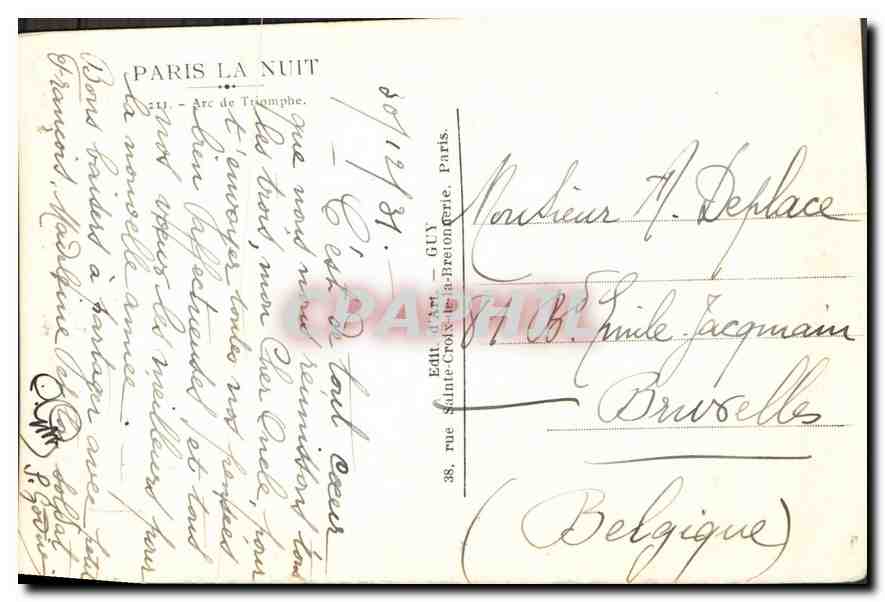 PARIS LA NUIT
211. — Arc de Triomphe.
30/12/31. —
— C'est de tout cœur
que nous nous réunissons tous
les trois, mon Cher Oncle, pour
t'envoyer toutes nos pensées
bien affectueuses et tous
nos vœux les meilleurs pour
la nouvelle année. —
Bons baisers à partager avec petit
François, Madeleine et le soldat
Edit. d'Art. — GUY
38, rue Sainte-Croix-de-la-Bretonnerie, Paris.
Monsieur A. Deplace
81 Bd Emile Jacqmain
Bruxelles
(Belgique)
CPAPHIL